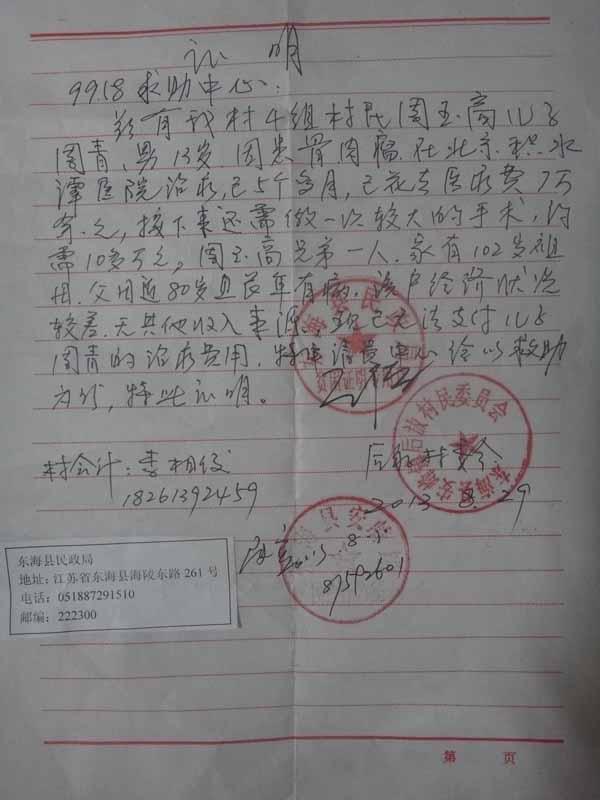 证 明
9918求助中心:
兹有我村4组村民周玉高儿子
周青,男13岁,因患骨肉瘤,在北京积水
潭医院治疗,已5个多月,已花去医疗费7万
余元,接下来还需做一次较大的手术,约
需10多万元,周玉高兄弟一人,家有102岁祖
母,父母近80岁且长年有病,该户经济状况
较差,无其他收入来源,现已无法支付儿子
周青的治疗费用,特申请贵中心给以救助
为盼,特此证明。
村会计:李相
18261392459
后放村委会
2013.8.29
后放村民委员会
东海县安
县安
87592601
东海县民政局
地址:江苏省东海县海陵东路 261 号
电话:051887291510
邮编:222300
第 页